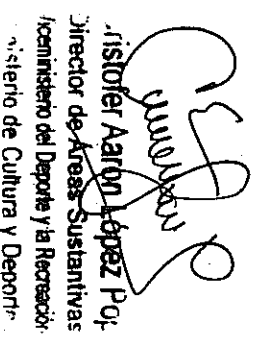 ristofer Aaron López Pop
Director de Áreas Sustantivas
Viceministerio del Deporte y la Recreación
nisterio de Cultura y Deporte